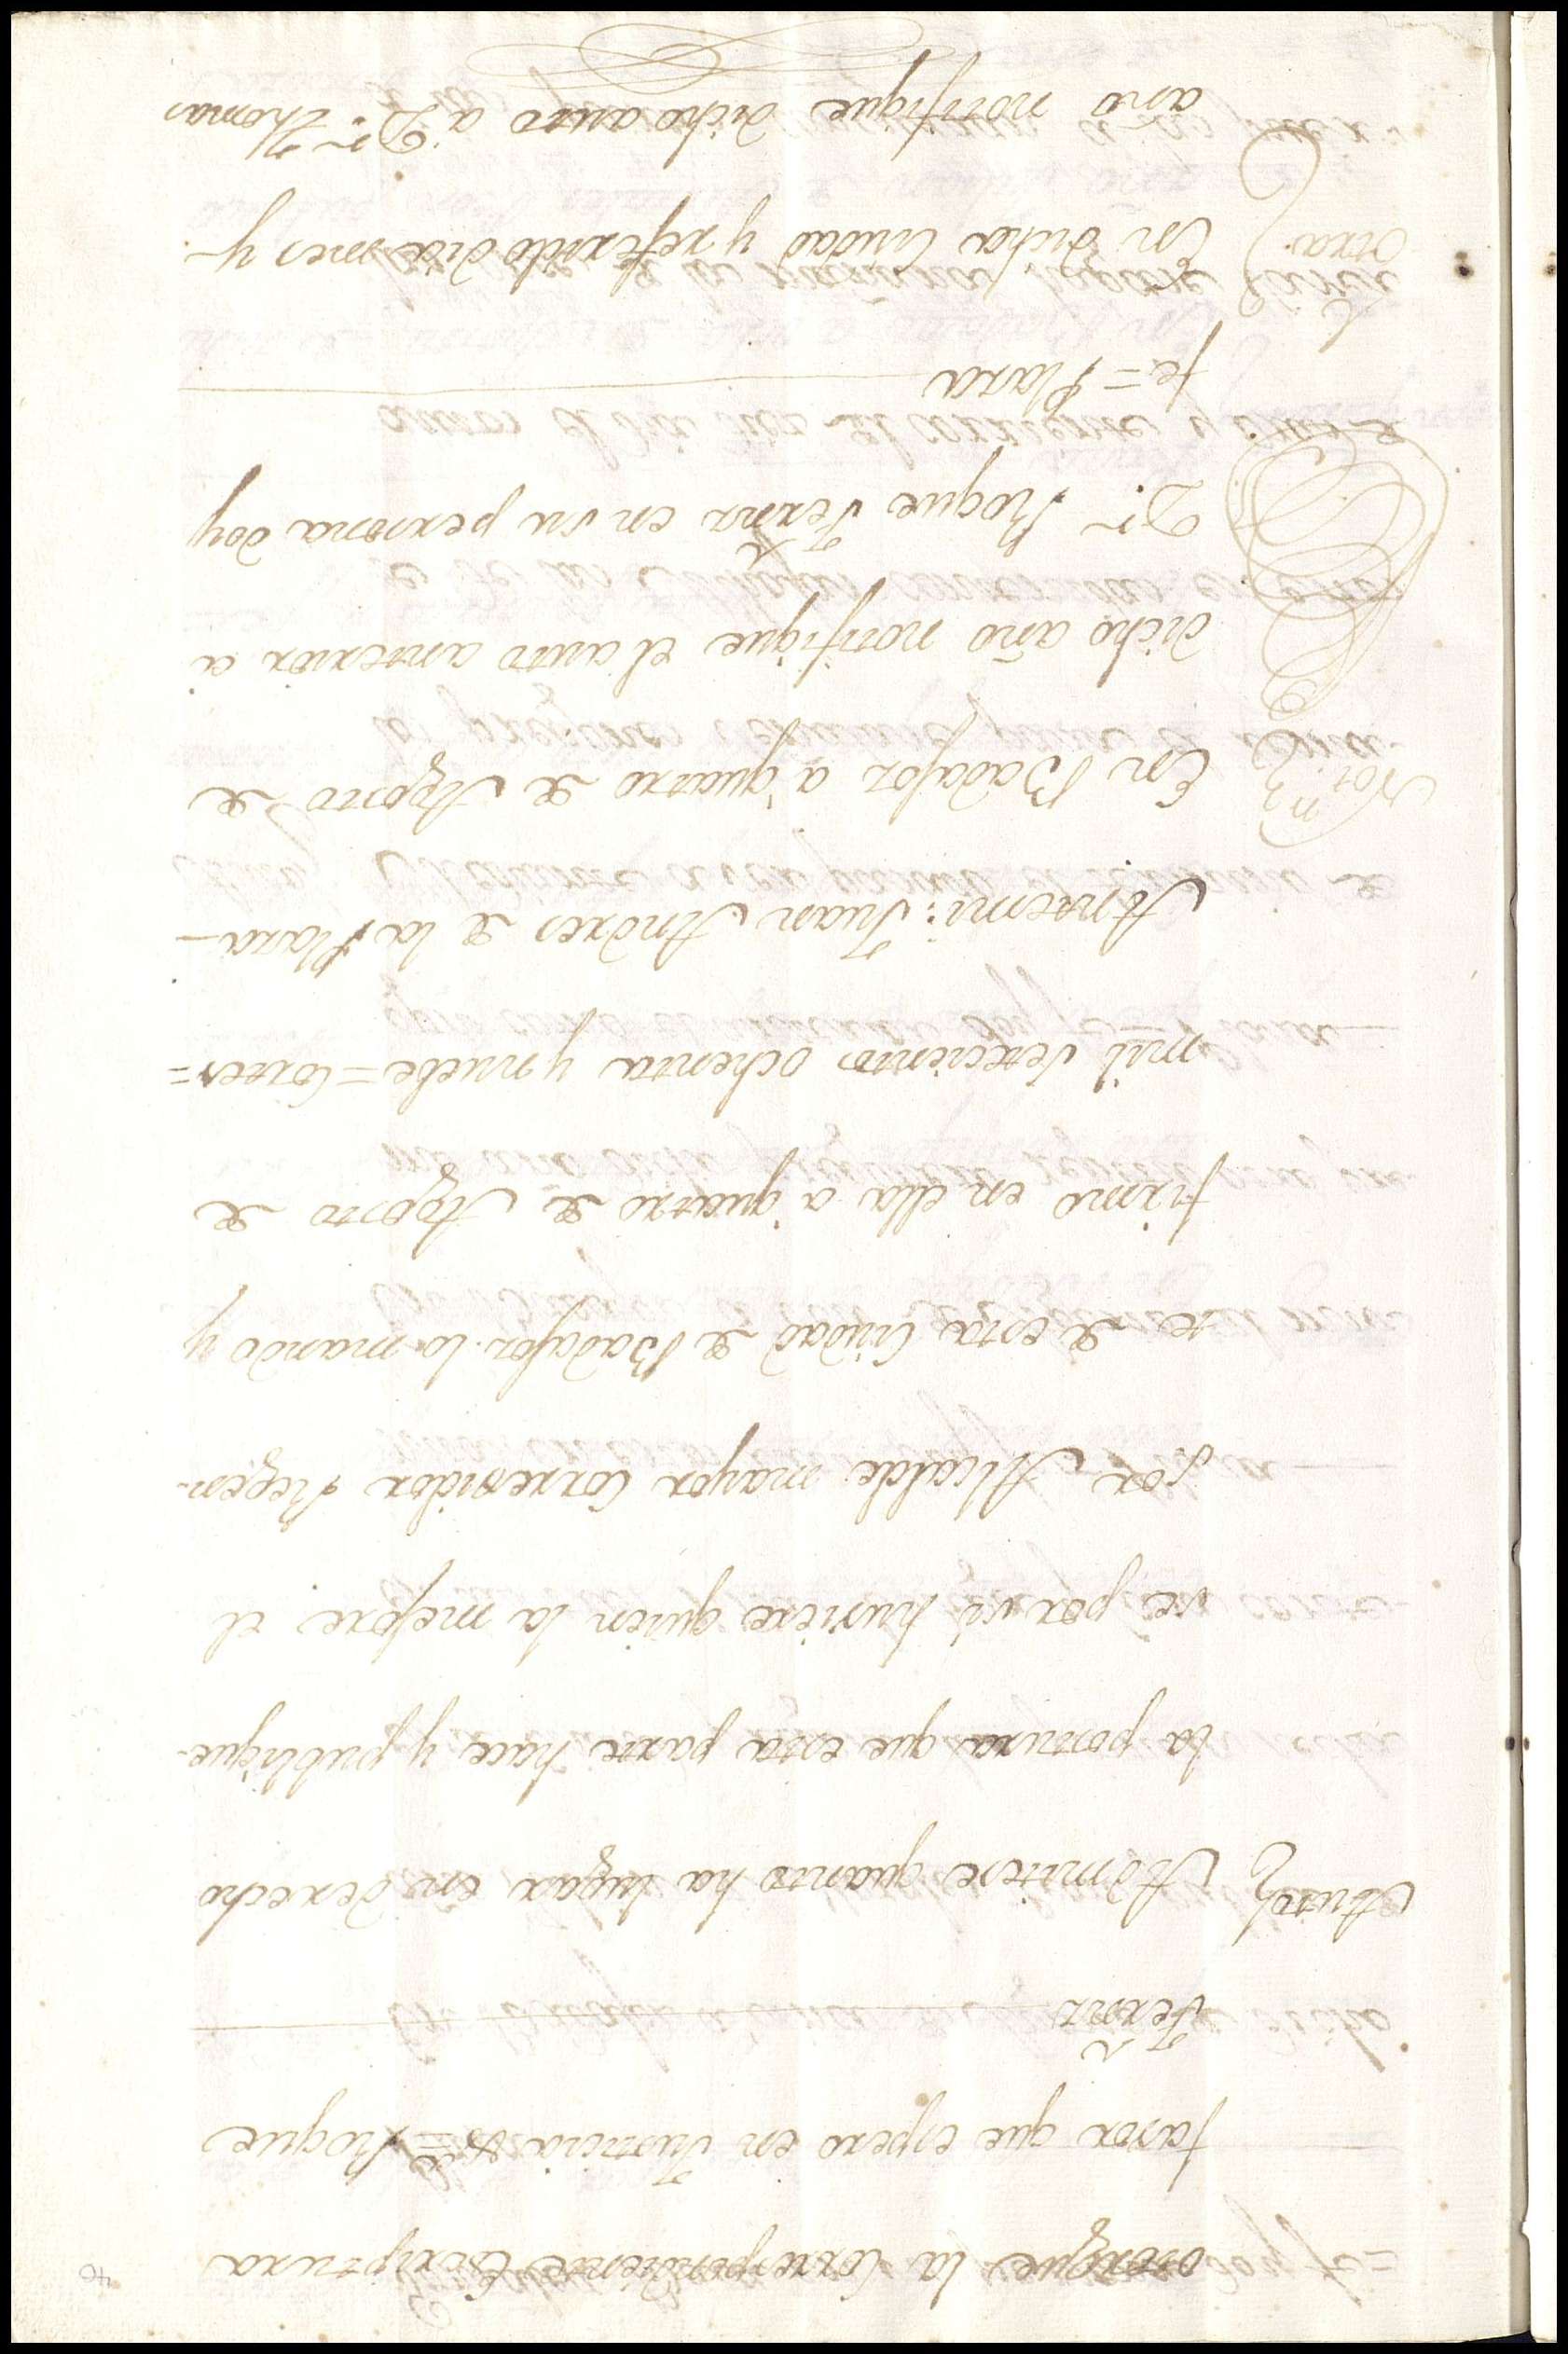 otorgue la Correspondiente Escriptura
favor que espero en Justicia &ª = Roque
Terrn
Auto Admitese quanto ha lugar en derecho
la postura que esta parte hace, y publique-
se por si huviere quien la mejore el
Sor Alcalde mayor Corregidor Regen-
te de esta Ciudad de Badajoz lo mando y
firmo en ella a quatro de Agosto de
mil Setecientos ochenta y nuebe = Cortes =
Antemi: Juan Andres de la Plaza —
Notn En Badajoz a quatro de Agosto de
dicho año notifique el auto anterior a
Dn Roque Terrn en su persona doy
fe = Plaza
otra En dicha Ciudad y referido dia mes y
año notifique dicho auto a Dn Thomas